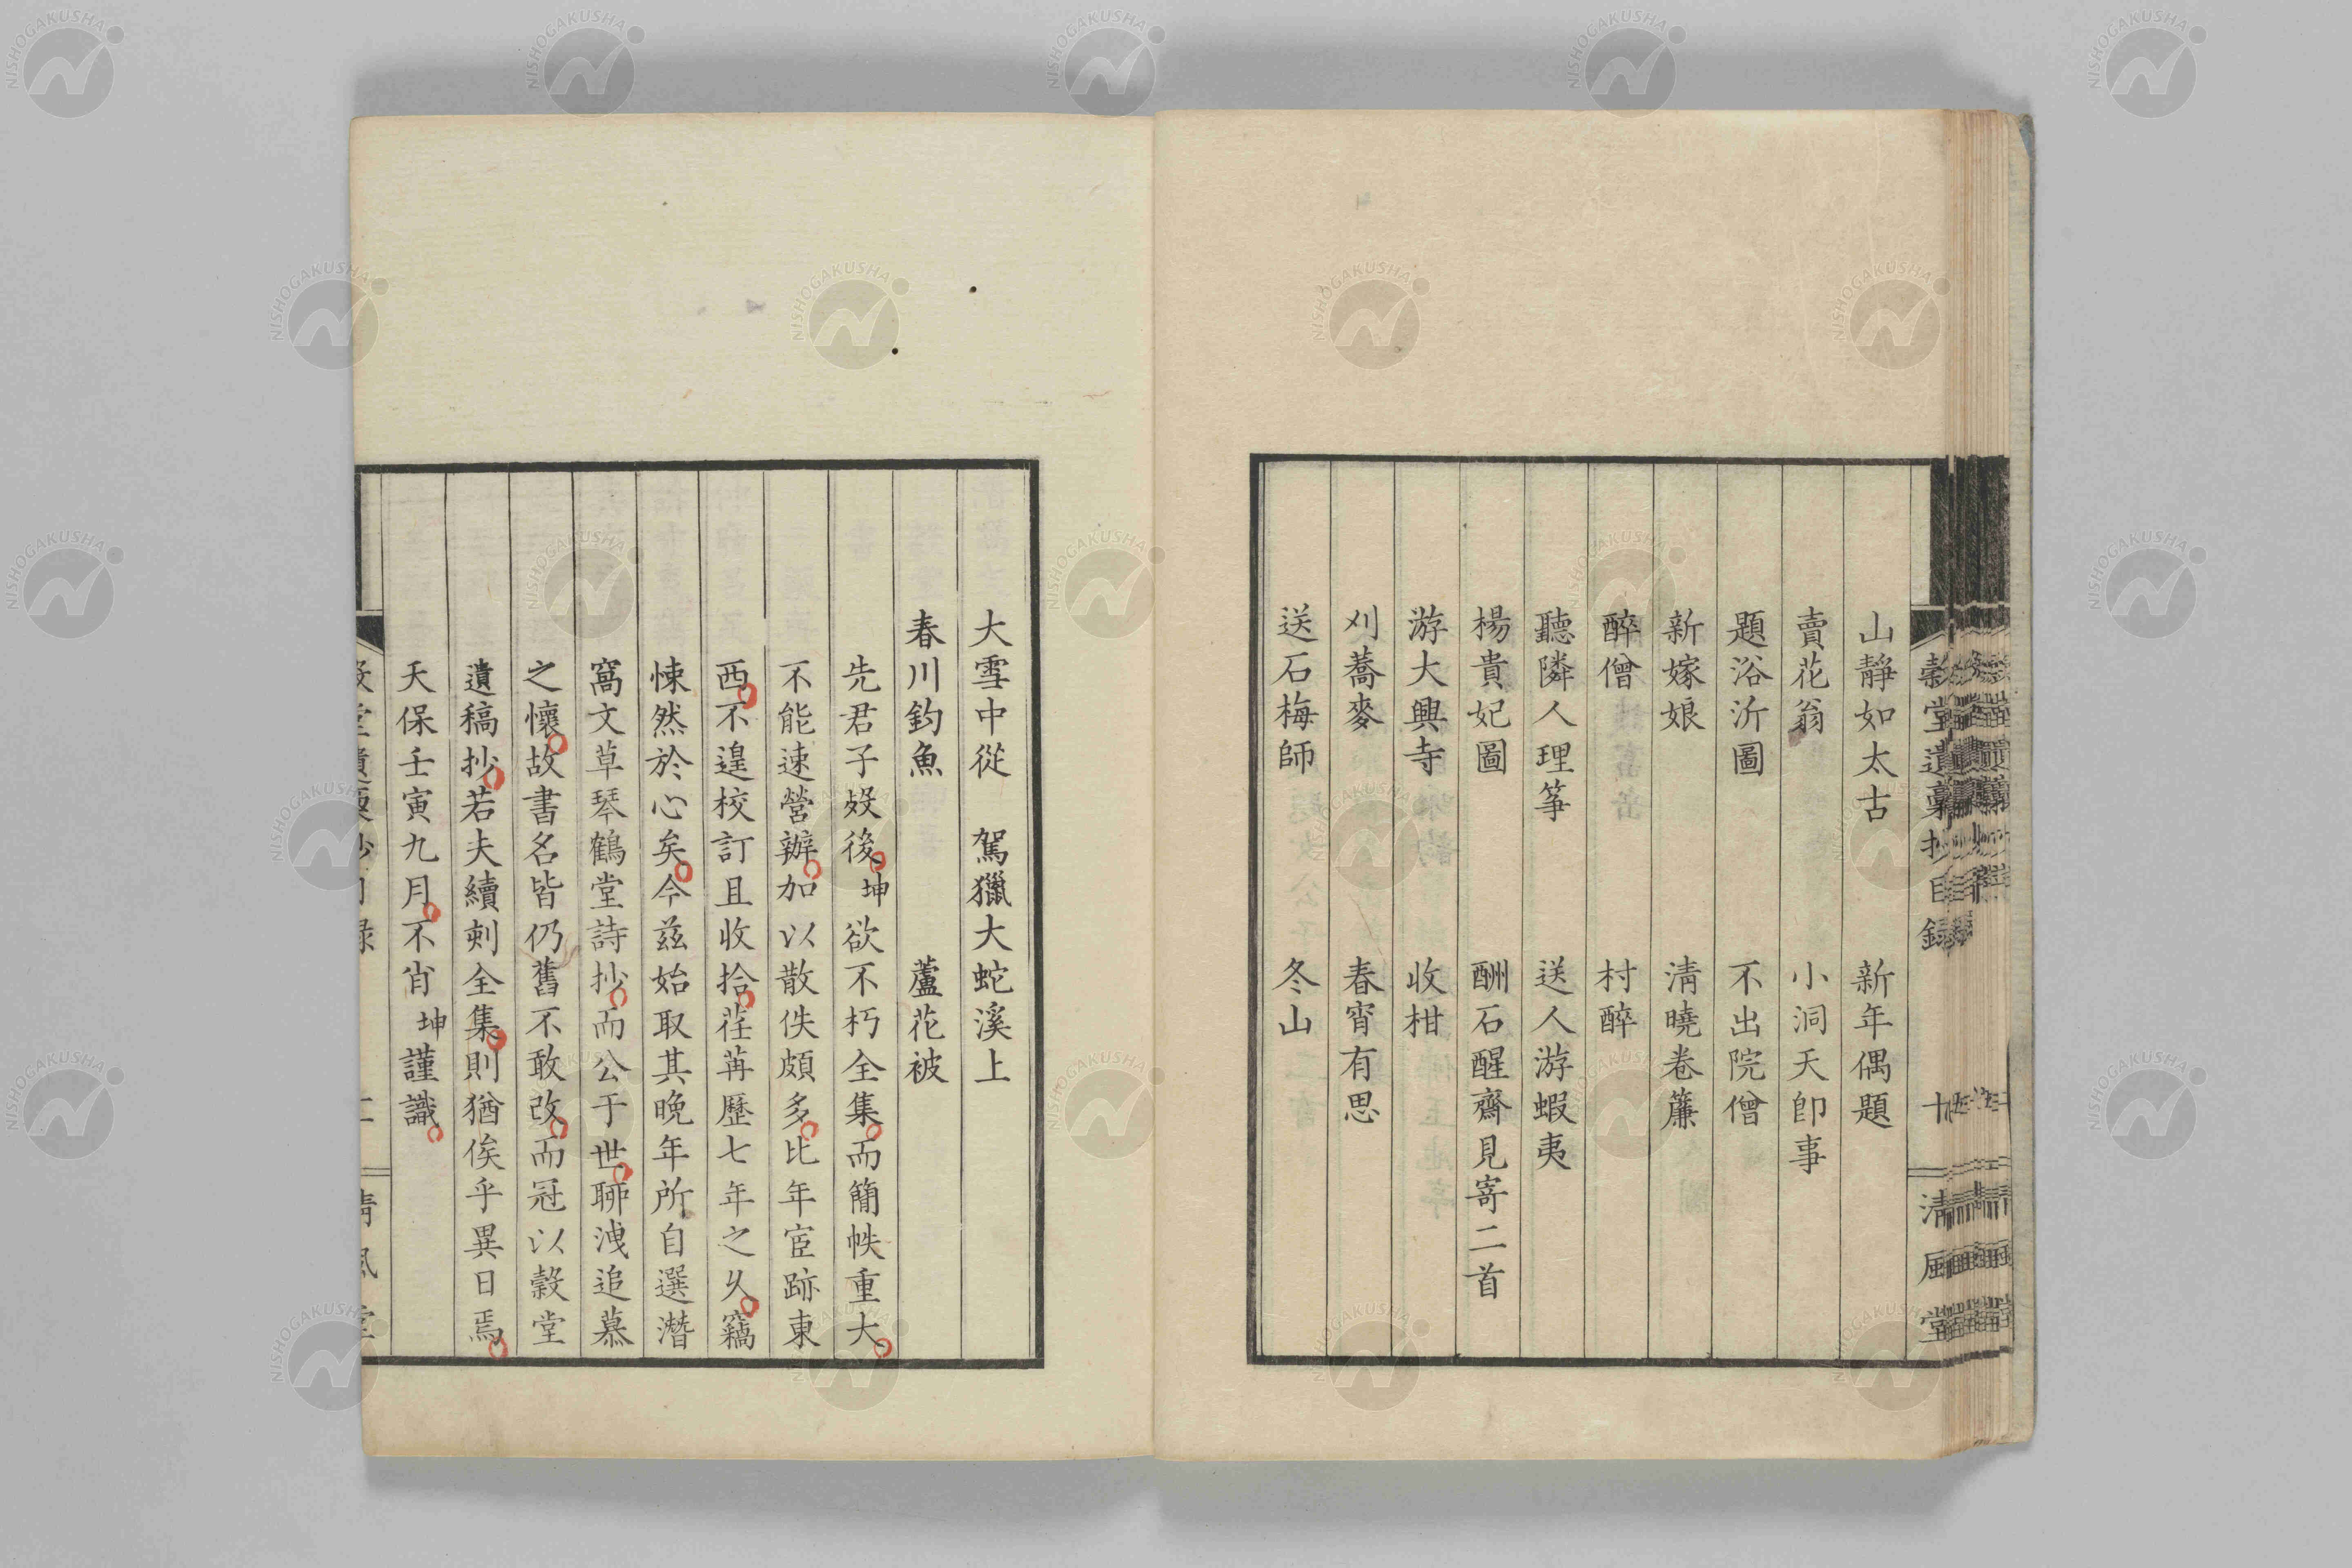 穀堂遺稾抄目錄
清風堂
山靜如太古　新年偶題
賣花翁　小洞天卽事
題浴沂圖　不出院僧
新嫁娘　淸曉卷簾
醉僧　村醉
聽隣人理箏　送人游蝦夷
楊貴妃圖　酬石醒齋見寄二首
游大興寺　收柑
刈蕎麥　春宵有思
送石梅師　冬山
大雪中從　駕獵大蛇溪上
春川釣魚　蘆花被
先君子歿後坤欲不朽全集而簡帙重大
不能速營辦加以散佚頗多比年宦跡東
西不遑校訂且收拾荏苒歷七年之久竊
悚然於心矣今茲始取其晚年所自選潛
窩文草琴鶴堂詩抄而公于世聊洩追慕
之懷故書名皆仍舊不敢改而冠以穀堂
遺稿抄若夫續刻全集則猶俟乎異日焉
天保壬寅九月不肖坤謹識
NISHOGAKUSHA